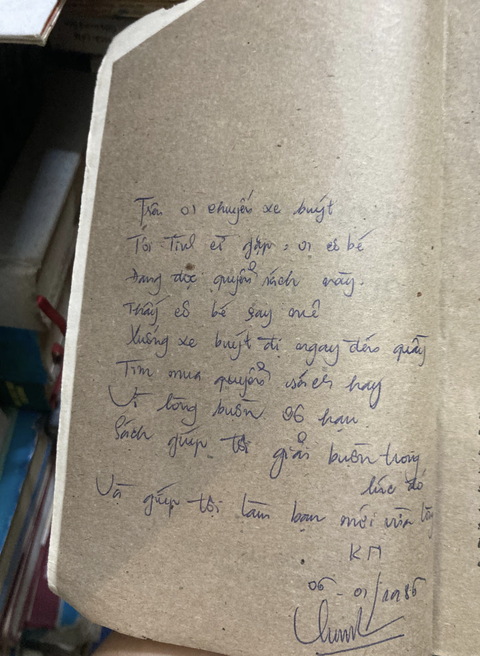 Trên 01 chuyến xe buýt
Tôi Tình cờ gặp 01 cô bé
Đang đọc quyển sách này.
Thấy cô bé say mê
Xuống xe buýt đi ngay đến quầy
Tìm mua quyển sách hay
Vì lòng buồn vô hạn
Sách giúp tôi giải buồn trong
lúc đó
Và giúp tôi làm bạn mới vừa
KM
06 - 01/1986